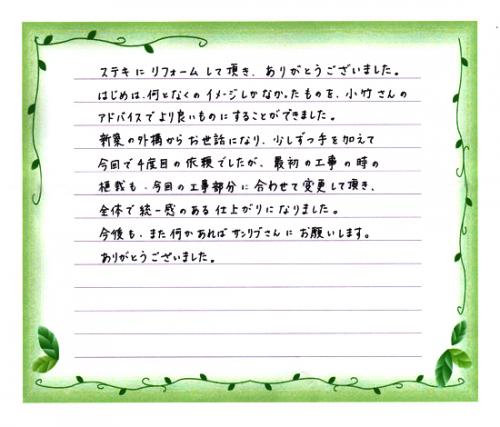 ステキに リフォームして頂き、ありがとうございました。
はじめは、何となくの イメージしかなかったものを、小竹さんの
アドバイスでより良いものにすることができました。
新築の外構からお世話になり、少しずつ手を加えて
今回で4度目の依頼でしたが、最初の工事の時の
植栽も、今回の工事部分に合わせて変更して頂き、
全体で統一感のある仕上がりになりました。
今後も、また何かあれば サンリブさんに お願いします。
ありがとうございました。